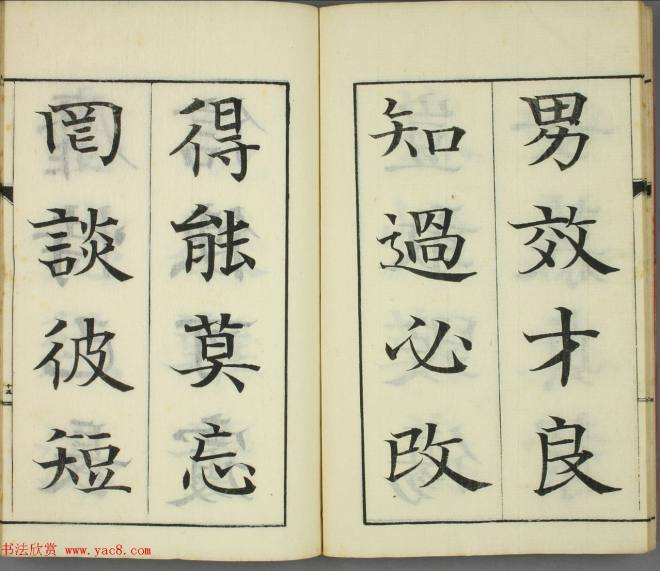 男效才良
知過必改
得能莫忘
罔談彼短
书法欣赏 www.yac8.com